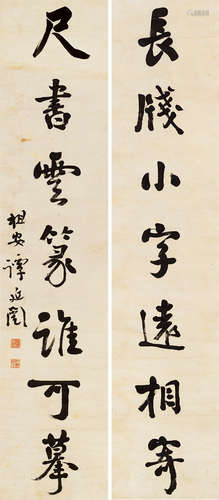 長牋小字遠相寄
尺書雲篆誰可摹
祖安譚延闓